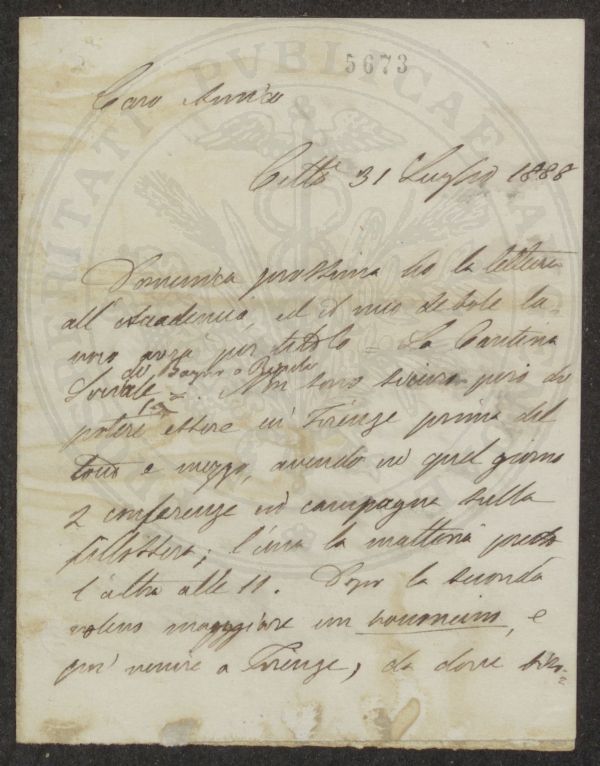 PROSPERITATI PVBLICAE AVGENDAE
5673
Caro Amico
Città 31 Luglio 1888
Domenica prossima ho la lettura
all'Accademia, ed il mio debole la-
voro avrà per titolo = La Cantina
Sociale di Bagno a Ripoli =. Non sono sicuro però di
potere essere in Firenze prima del
tocco e mezzo, avendo in quel giorno
2 conferenze in campagna sulla
fillossera; l'una la mattina presto
l'altra alle 11. Dopo la seconda
voleno mangiare un bouoncino, e
poi venire a Firenze, da dove